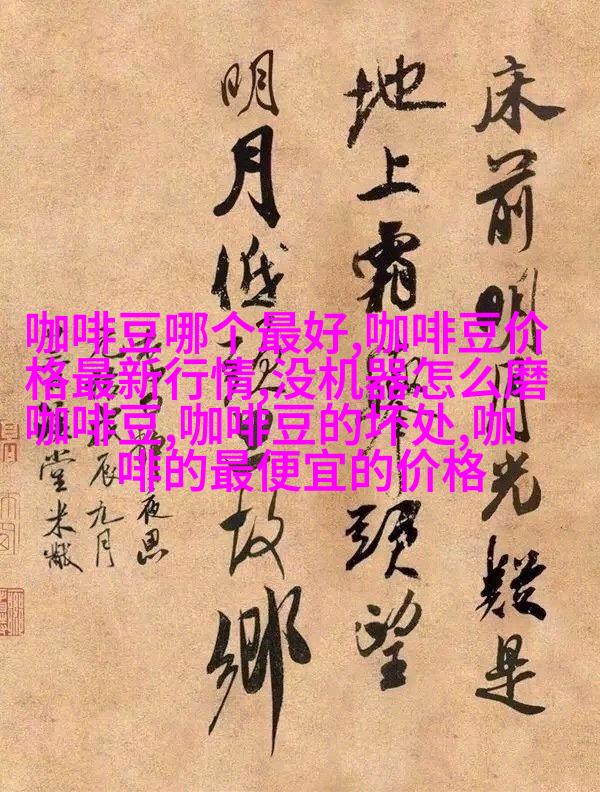 咖啡豆哪个最好,咖啡豆价
格最新行情,没机器怎么磨
咖啡豆,咖啡豆的坏处,咖
啡的最便宜的价格
床前明月光疑是
地上霜舉頭望
明月低頭思故鄉
夜思
辰九月
堂米黻